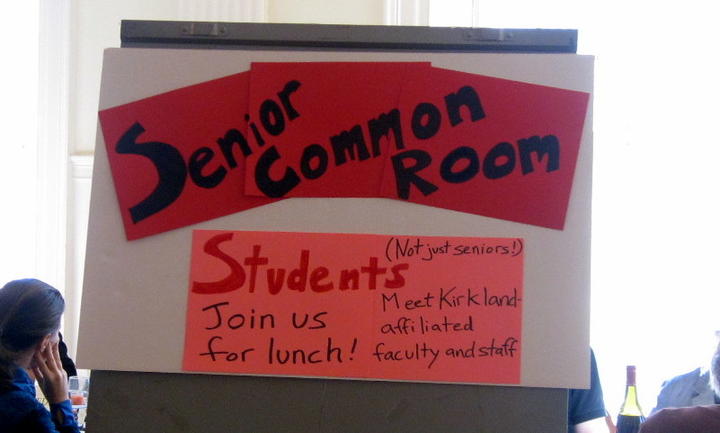 Senior
Common
Room
Students
(Not just seniors!)
Join us
for lunch!
Meet Kirkland-
affiliated
faculty and staff